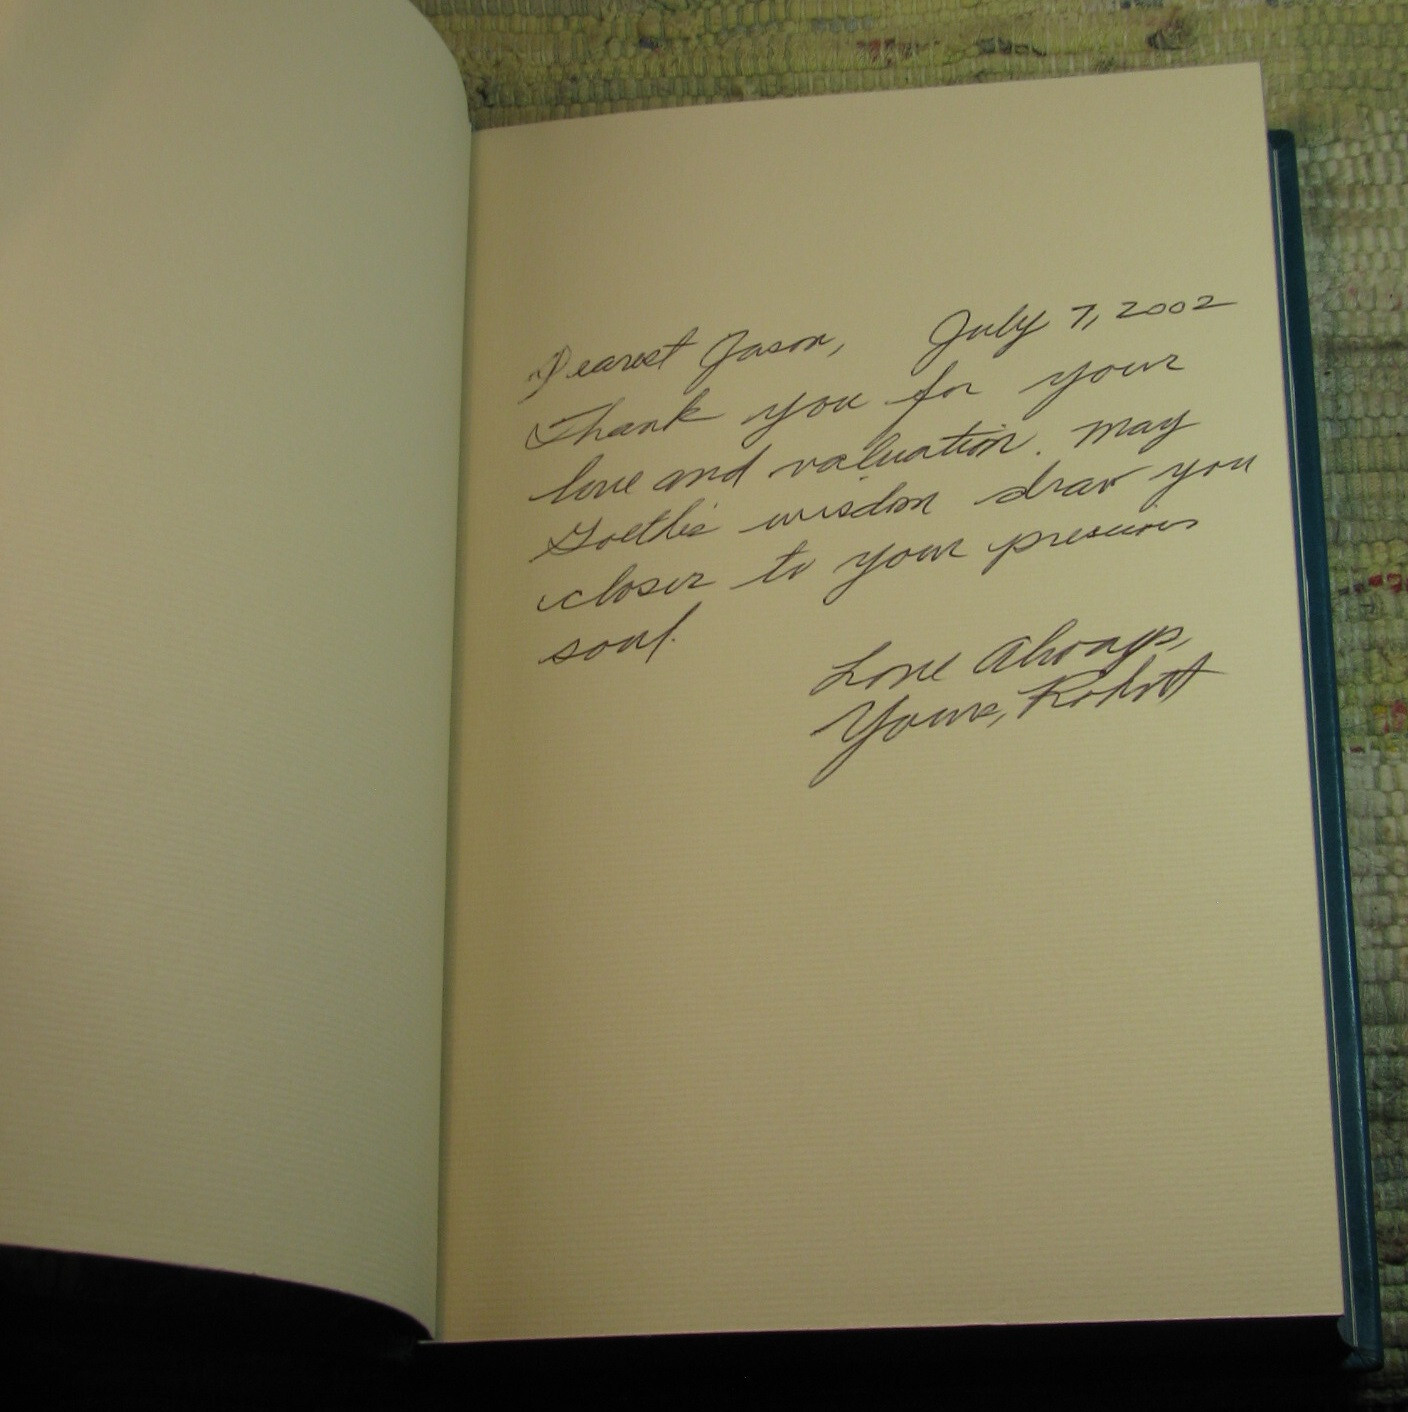 Dearest Jason, July 7, 2002
Thank you for your
love and valuation. May
Goethe's wisdom draw you
closer to your precious
soul.
Love Always,
Yours, Robert